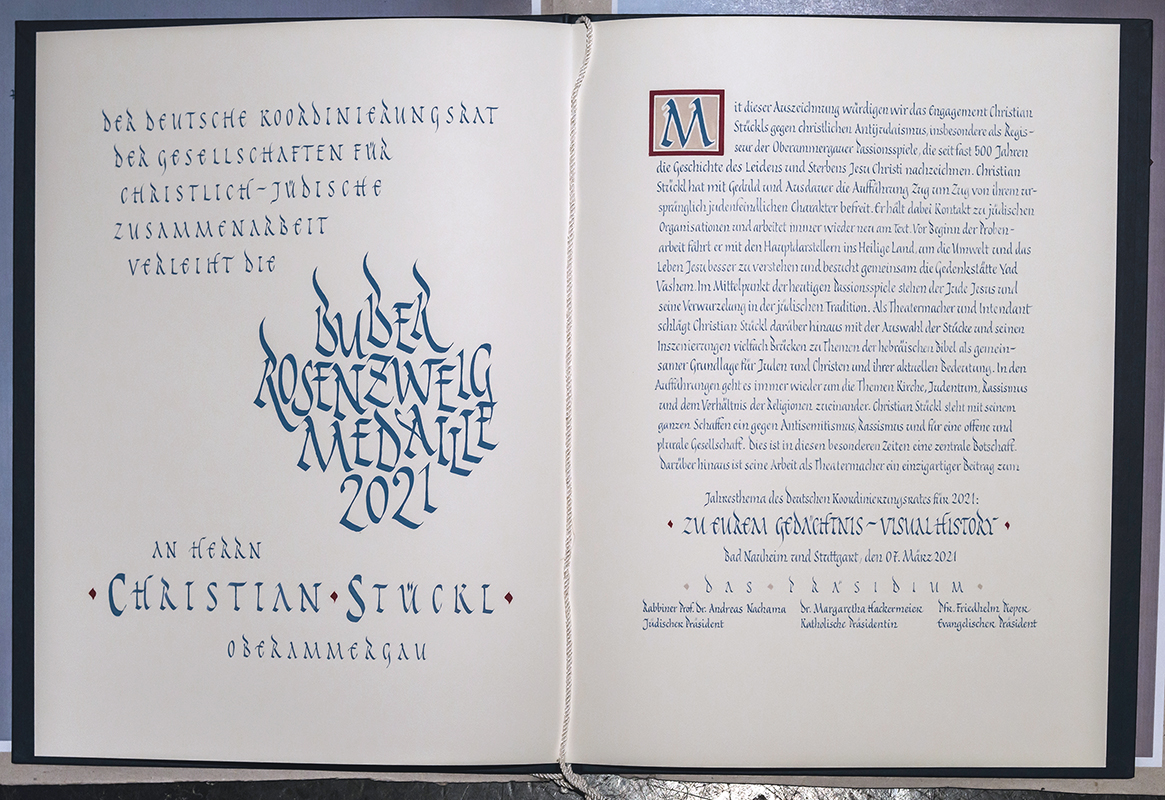 DER DEUTSCHE KOORDINIERUNGSRAT
DER GESELLSCHAFTEN FÜR
CHRISTLICH-JÜDISCHE
ZUSAMMENARBEIT
VERLEIHT DIE
BUBER
ROSENZWEIG
MEDAILLE
2021
AN HERRN
CHRISTIAN STÜCKL
OBERAMMERGAU
Mit dieser Auszeichnung würdigen wir das Engagement Christian
Stückls gegen christlichen Antijudaismus, insbesondere als Regis-
seur der Oberammergauer Passionsspiele, die seit fast 500 Jahren
die Geschichte des Leidens und Sterbens Jesu Christi nachzeichnen. Christian
Stückl hat mit Geduld und Ausdauer die Aufführung Zug um Zug von ihrem ur-
sprünglich judenfeindlichen Charakter befreit. Er hält dabei Kontakt zu jüdischen
Organisationen und arbeitet immer wieder neu am Text. Vor Beginn der Proben-
arbeit fährt er mit den Hauptdarstellern ins Heilige Land, um die Umwelt und das
Leben Jesu besser zu verstehen und besucht gemeinsam die Gedenkstätte Yad
Vashem. Im Mittelpunkt der heutigen Passionsspiele stehen der Jude Jesus und
seine Verwurzelung in der jüdischen Tradition. Als Theatermacher und Intendant
schlägt Christian Stückl darüber hinaus mit der Auswahl der Stücke und seinen
Inszenierungen vielfach Brücken zu Themen der hebräischen Bibel als gemein-
samer Grundlage für Juden und Christen und ihrer aktuellen Bedeutung. In den
Aufführungen geht es immer wieder um die Themen Kirche, Judentum, Rassismus
und dem Verhältnis der Religionen zueinander. Christian Stückl steht mit seinem
ganzen Schaffen ein gegen Antisemitismus, Rassismus und für eine offene und
plurale Gesellschaft. Dies ist in diesen besonderen Zeiten eine zentrale Botschaft.
Darüber hinaus ist seine Arbeit als Theatermacher ein einzigartiger Beitrag zum
Jahresthema des Deutschen Koordinierungsrates für 2021:
ZU EUREM GEDÄCHTNIS – VISUAL HISTORY
Bad Nauheim und Stuttgart, den 07. März 2021
DAS PRÄSIDIUM
Rabbiner Prof. Dr. Andreas Nachama Dr. Margaretha Hackermeier Pfr. Friedhelm Pieper
Jüdischer Präsident Katholische Präsidentin Evangelischer Präsident